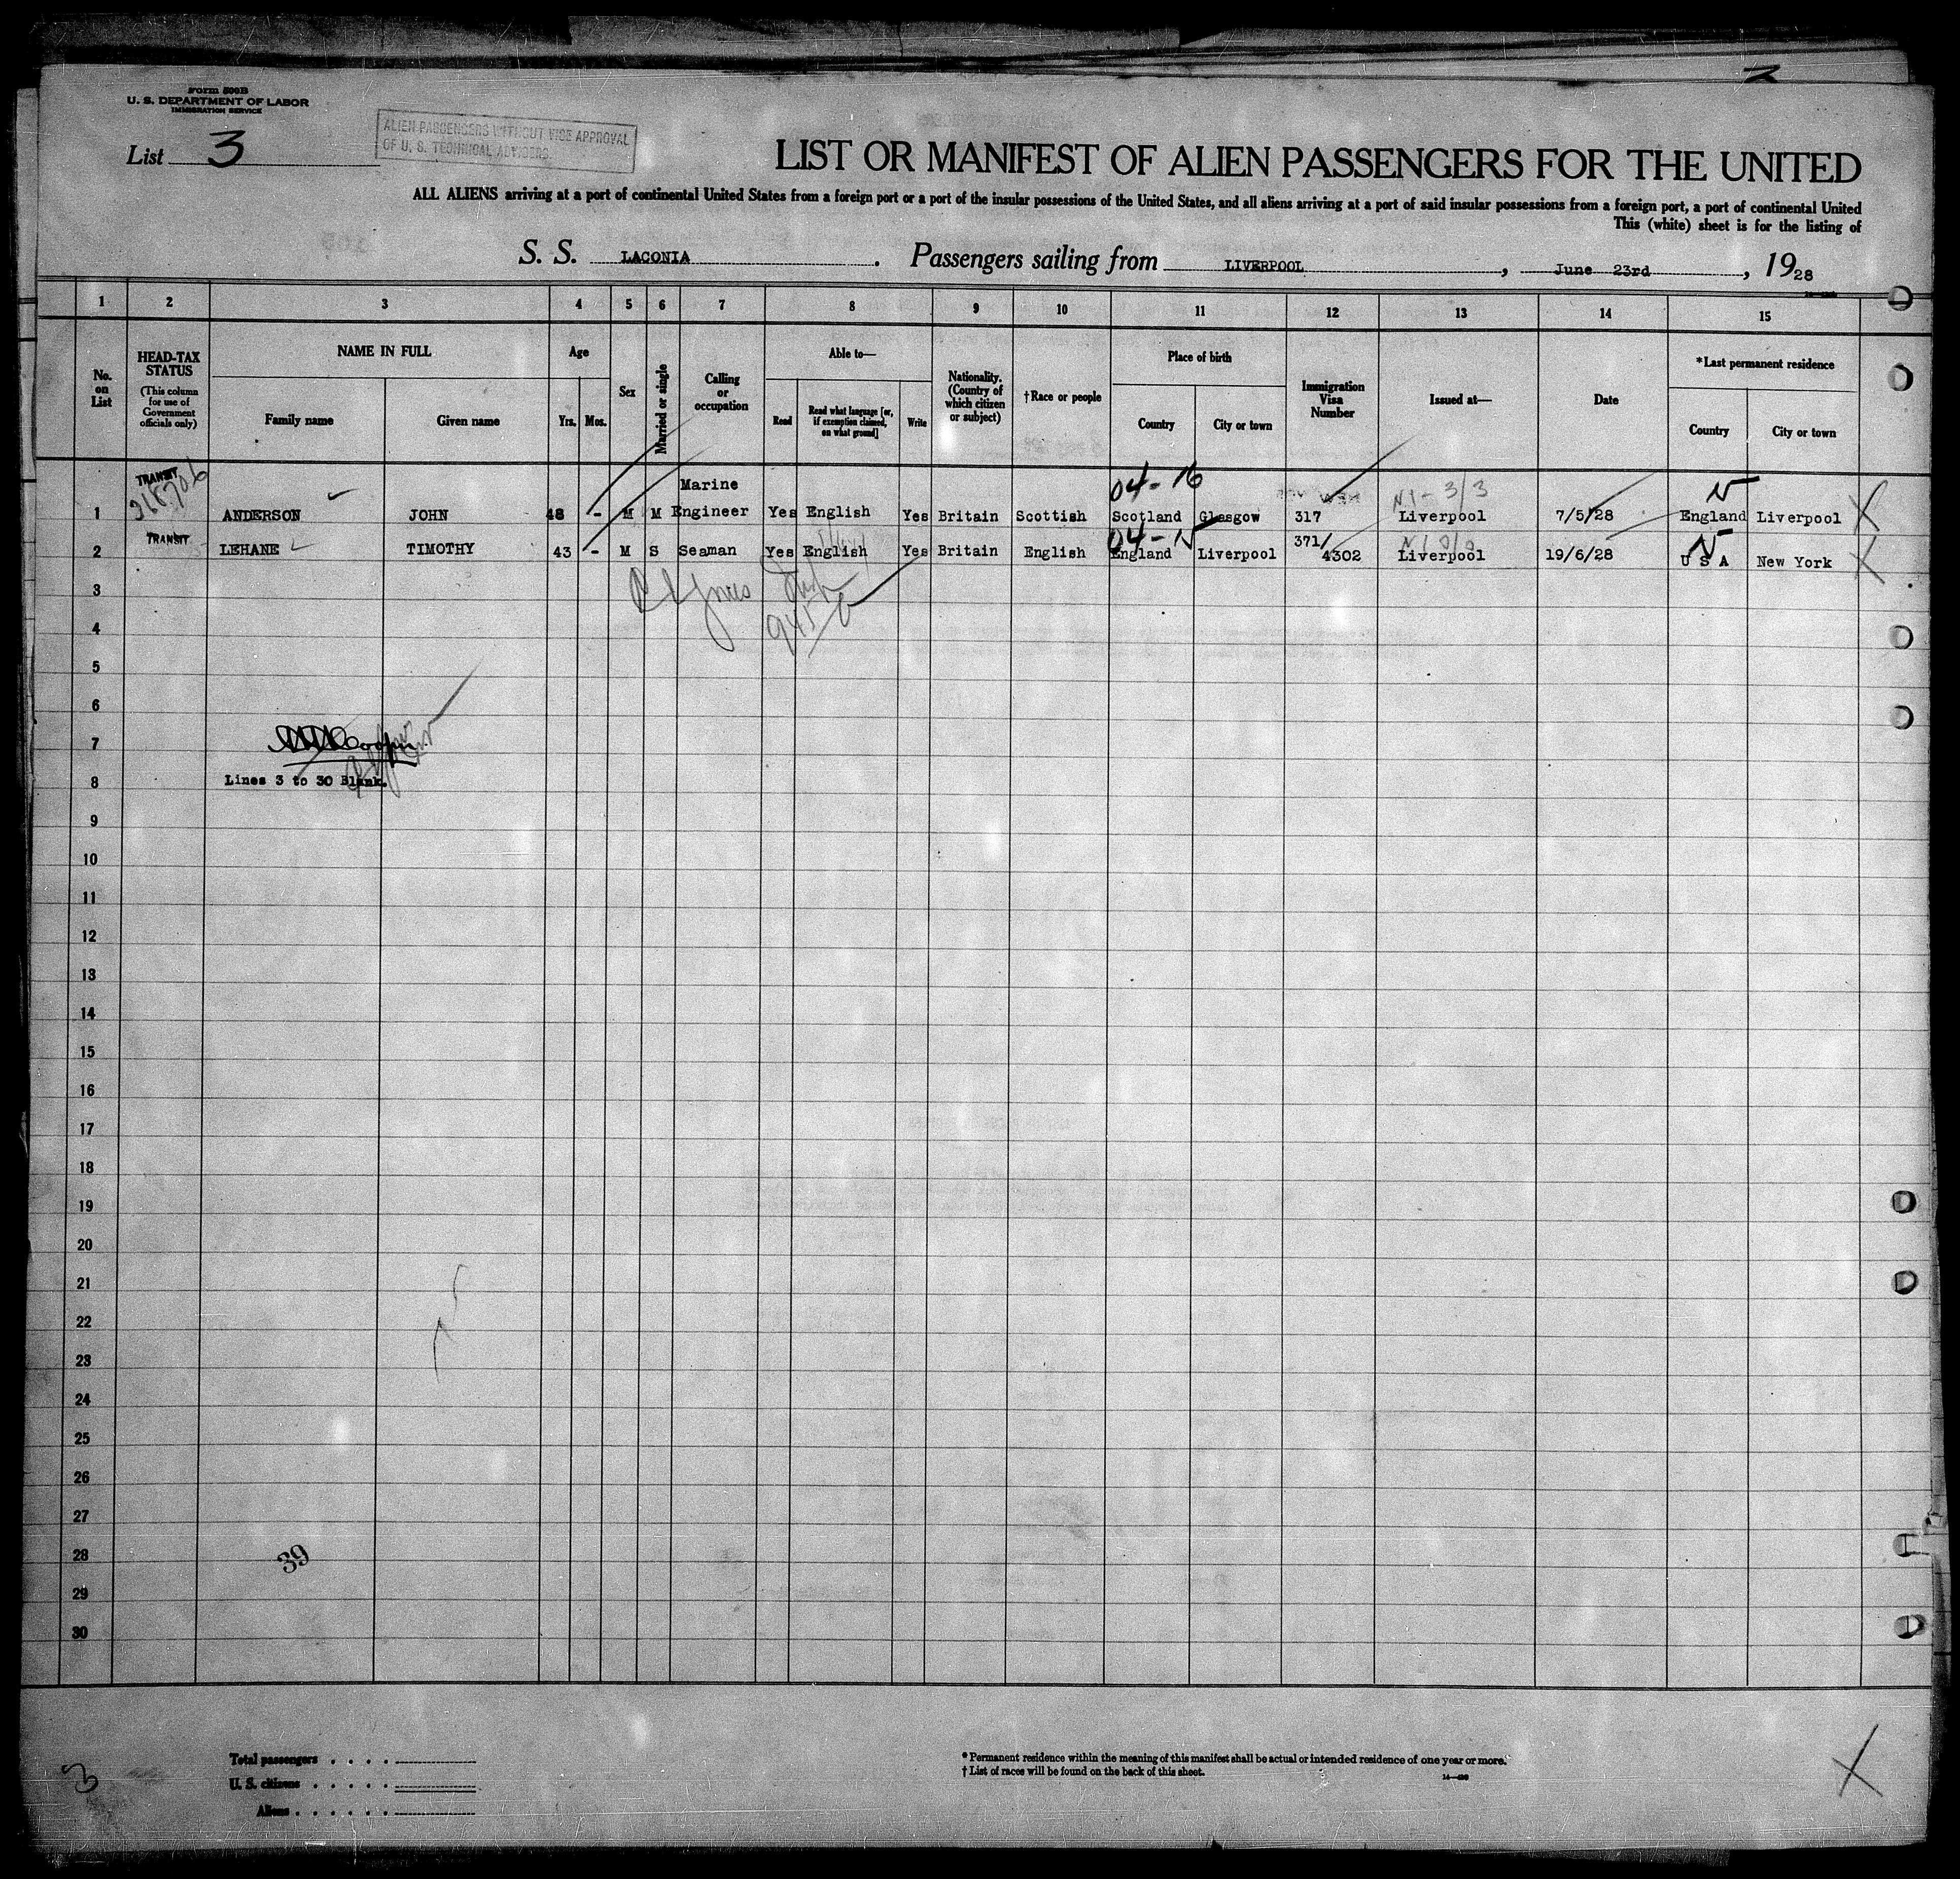 Form 500B
U. S. DEPARTMENT OF LABOR
IMMIGRATION SERVICE
List 3
ALIEN PASSENGERS WITHOUT VISE APPROVAL
OF U. S. TECHNICAL ADVISERS
LIST OR MANIFEST OF ALIEN PASSENGERS FOR THE UNITED
ALL ALIENS arriving at a port of continental United States from a foreign port or a port of the insular possessions of the United States, and all aliens arriving at a port of said insular possessions from a foreign port, a port of continental United
This (white) sheet is for the listing of
S. S. LACONIA . Passengers sailing from LIVERPOOL , June 23rd , 1928
1 2 3 4 5 6 7 8 9 10 11 12 13 14 15
No. on List
HEAD-TAX STATUS
(This column for use of Government officials only)
NAME IN FULL
Family name
Given name
Age
Yrs.
Mos.
Sex
Married or single
Calling or occupation
Able to—
Read
Read what language [or, if exemption claimed, on what ground]
Write
Nationality. (Country of which citizen or subject)
†Race or people
Place of birth
Country
City or town
Immigration Visa Number
Issued at—
Date
*Last permanent residence
Country
City or town
TRANSIT
Marine
04-16
1 ANDERSON JOHN 48 - M M Engineer Yes English Yes Britain Scottish Scotland Glasgow 317 Liverpool 7/5/28 England Liverpool
TRANSIT
04-
371/
2 LEHANE TIMOTHY 43 - M S Seaman Yes English Yes Britain English England Liverpool 4302 Liverpool 19/6/28 U S A New York
3
4
5
6
7
8 Lines 3 to 30 Blank.
9
10
11
12
13
14
15
16
17
18
19
20
21
22
23
24
25
26
27
28 39
29
30
3
Total passengers . . . .
U. S. citizens . . . . .
Aliens . . . . . .
* Permanent residence within the meaning of this manifest shall be actual or intended residence of one year or more.
† List of races will be found on the back of this sheet.